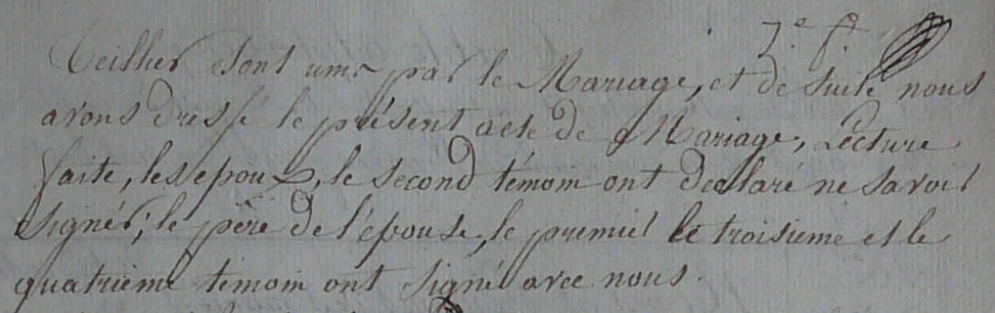 7.e f.
Teilher sont unis par le Mariage, et de suite nous
avons dressé le présent acte de Mariage, Lecture
faite, les epoux, le second témoin ont declaré ne savoir
signer; le père de l'épouse, le premier le troisieme et le
quatrieme témoin ont signé avec nous.